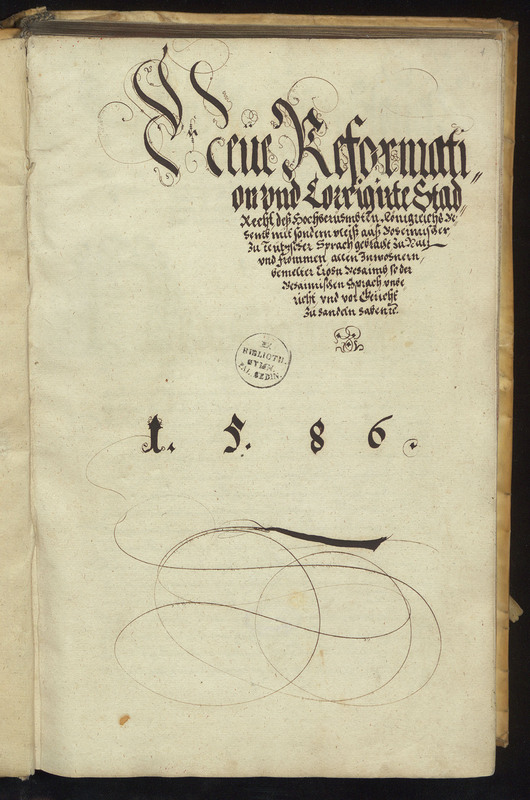 Neüe Reformati„
on vnd Corrigirte Stad
Recht deß Hochberümbten Königreichs Be„
hemb mit sondern vleiß auß Böemischer
Zu Teutzscher Sprach gebracht Zu Nutz
vnd Frommen allen Inwohnern
bemelter Cron Behaimb so der
Behaimischen Sprach vnbe
richt vnd vor Gericht
Zu handeln haben ꝛc.
EX
BIBLIOTH.
GYMN.
1. 5. 8 6.